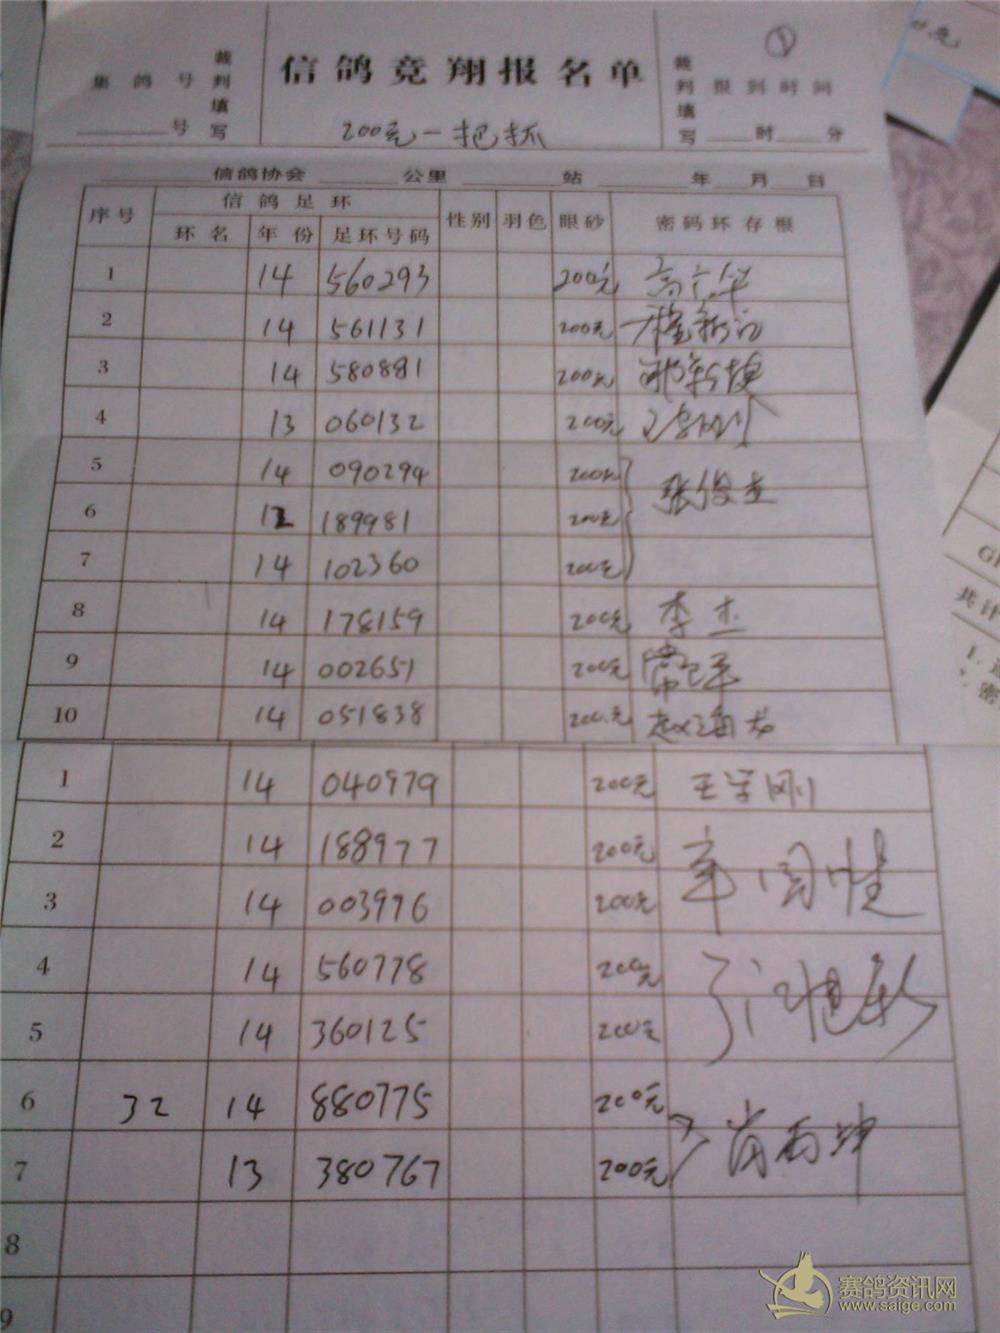 集鸽号 裁判填写 信鸽竞翔报名单 裁判填写 报到时间 ①
号 200元一把抓 时 分
信鸽协会 公里 站 年 月 日
序号 信鸽足环 性别 羽色 眼砂 密码环存根
环名 年份 足环号码
1 14 560293 200元
2 14 561131 200元
3 14 580881 200元
4 13 060132 200元 王学刚
5 14 090294 200元 张俊杰
6 12 189981 200元
7 14 102360 200元
8 14 178159 200元 李杰
9 14 002651 200元
10 14 051838 200元
1 14 040979 200元 王学刚
2 14 188977 200元
3 14 003976 200元
4 14 560778 200元
5 14 360125 200元
6 32 14 880775 200元
7 13 380767 200元
8
9
共计
1.
2. 密
赛鸽资讯网
www.saige.com